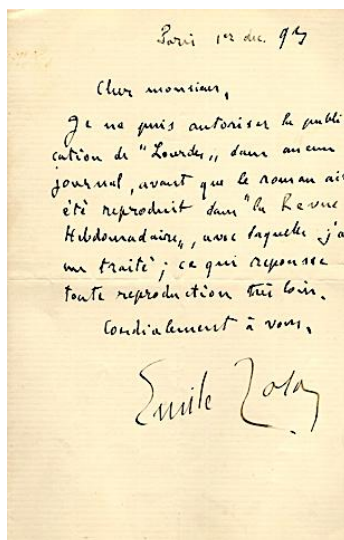 Paris 1er dec. 93
Cher monsieur,
Je ne puis autoriser la publi
cation de "Lourdes" dans aucun
journal, avant que le roman ait
été reproduit dans "la Revue
Hebdomadaire", avec laquelle j'a
un traité ; ce qui repousse
toute reproduction très loin.
Cordialement à vous,
Emile Zola